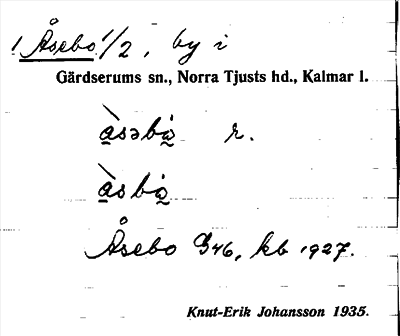 1 Åsebo 1/2, by i
Gärdserums sn., Norra Tjusts hd., Kalmar l.
àsəbò̰ r.
àsbò̰
Åsebo G46, kb 1927.
Knut-Erik Johansson 1935.